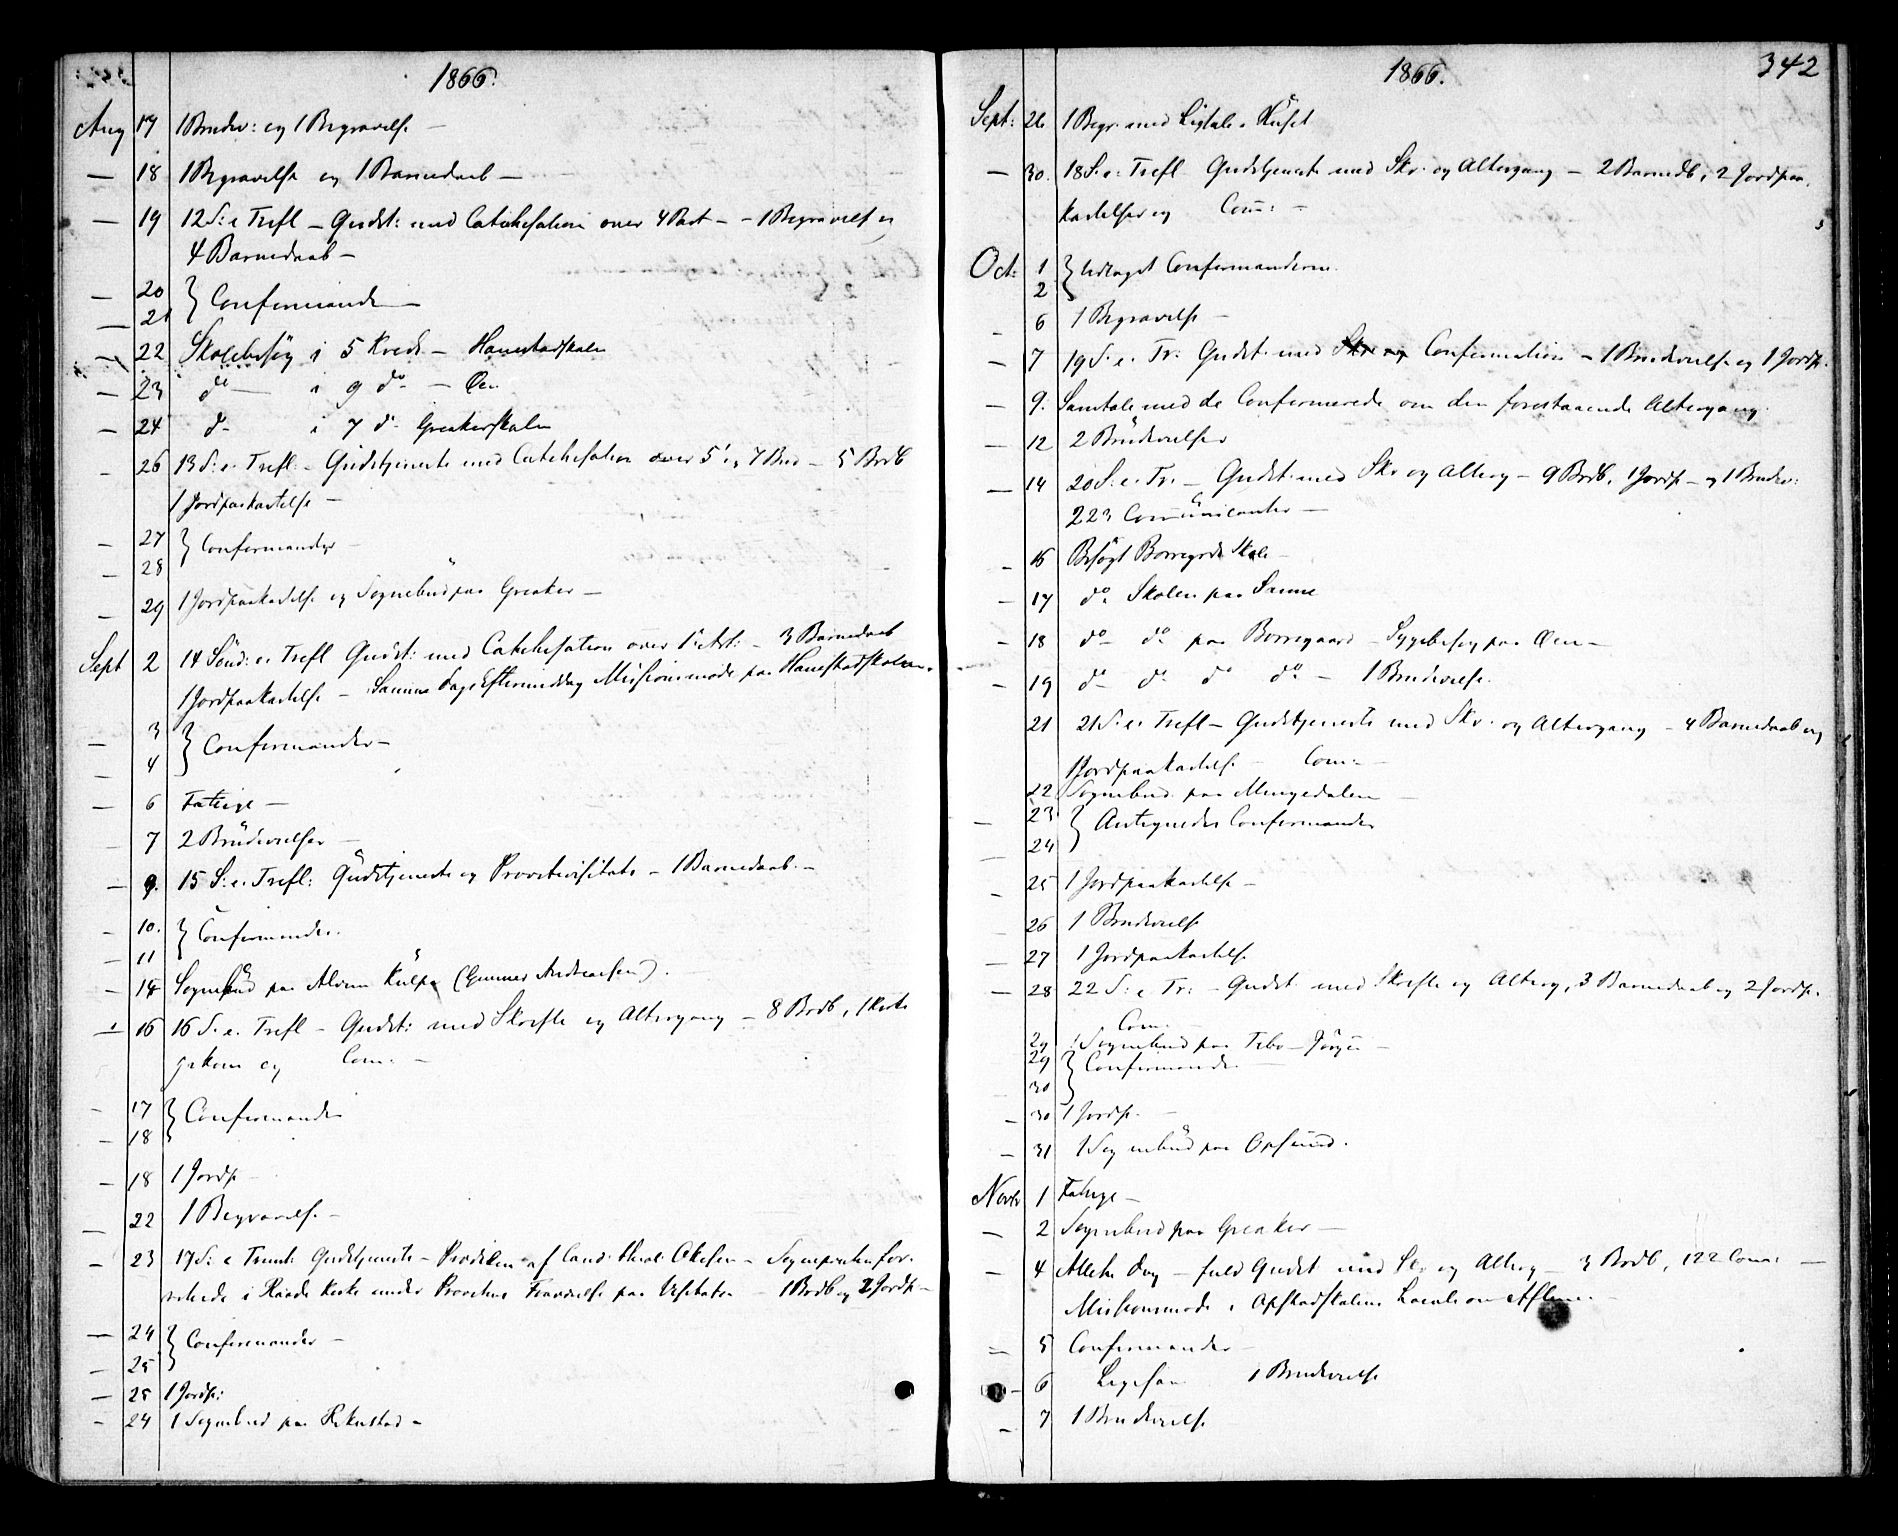 1866.
Aug 17 1 Brudev: og 1 Begravelse —
— 18 1 Begravelse og 1 Barnedaab —
— 19 12 S: e Trefl — Gudst: med Catechesation over 4 Part — 1 Begravelse og
4 Barnedaab —
— 20 } Confirmander —
— 21
— 22 Skolebesøg i 5 Kreds — Hannestadskolen
— 23 do — i 9 do — Øen
— 24 do i 7 do Greakerskolen
— 26 13 S: e. Trefl. — Gudstjeneste med Catechesation over 5 og 7 Bud — 5 Brdb
1 Jordpaakastelse —
— 27 } Confirmander —
— 28
— 29 1 Jordpaakastelse og Sognebud paa Greaker —
Sept 2 14 Sönd: e. Trefl Gudst: med Catechesation over 1 Art: — 3 Barnedaab
1 Jordpaakastelse — Samme Dags Eftermiddag Missionsmøde paa Hannestadskolen.
— 3 } Confirmander —
— 4
— 6 Fattige —
7 2 Brudevielser —
— 9. 15 S: e. Trefl: Gudstjeneste og Provstevisitats — 1 Barnedaab. —
— 10. } Confirmander.
— 11
— 14 Sognebud paa Alvim (Gunner Andreassen).
— 16 16 S. e. Trefl — Gudst: med Skrifte og Altergang — 8 Brdb, 1 Kirke
gekom og Com: —
— 17 } Confirmander
— 18
— 18 1 Jordp —
— 22 1 Begravelse. —
— 23 17 S: e Trinit. Gudstjeneste — Prædiken af Cand. theol. — Sognepræsten for-
rettede i Raade Kirke under Provstens Fraværelse paa Visitats — 1 Brdb og 2 Jordp —
— 24 } Confirmander —
— 25
— 25 1 Jordp:
— 24 1 Sognebud paa —
1866. 342
Sept: 26 1 Begr. med Ligtale i Huset
— 30. 18 S. e. Trefl Gudstjeneste med Skr. og Altergang — 2 Barnedb, 2 Jordpaa-
kastelser og Com: —
Oct: 1 } Udtaget Confirmanderne.
2
— 6 1 Begravelse —
— 7 19 S. e. Tr: Gudst. med Skr. og Confirmation — 1 Brudevielse og 1 Jordp.
— 9. Samtale med de Confirmerede om den forestaaende Altergang.
— 12 2 Brudevielser
— 14 20 S. e. Tr. — Gudst. med Skr og Alterg — 9 Brdb, 1 Jordp — og 1 Brudev:
223 Communicanter —
— 16 Besøgt Borregaards Skole —
— 17 do Skolen paa Sanne
— 18 do do paa Borregaard — Sygebesøg paa Øen —
— 19 do do do do — 1 Brudevielse.
21 21 S: e. Trefl — Gudstjeneste med Skr. og Altergang — 4 Barnedaab og
1 Jordpaakastelse — Com: —
22 Sognebud paa Mingedalen —
— 23 } Antegnede Confirmander
— 24
— 25 1 Jordpaakastelse —
— 26 1 Brudevielse
— 27 1 Jordpaakastelse
— 28 22 S: e Tr: — Gudst med Skrifte og Alterg, 3 Barnedaab og 2 Jordp.
Com: —
29 1 Sognebud paa —
29 } Confirmander. —
30
— 30 1 Jordp. —
— 31 1 Sognebud paa Opsund.
Novbr 1 Fattige —
— 2 Sognebud paa Greaker —
— 4 Allehe. Dag — fuld Gudst med Skr og Alterg — 3 Brdb, 122 Com: —
Missionsmøde i Opstadskolens Locale om Aftenen. —
— 5 Confirmander —
— 6 1 Brudevielse
— 7 1 Brudevielse